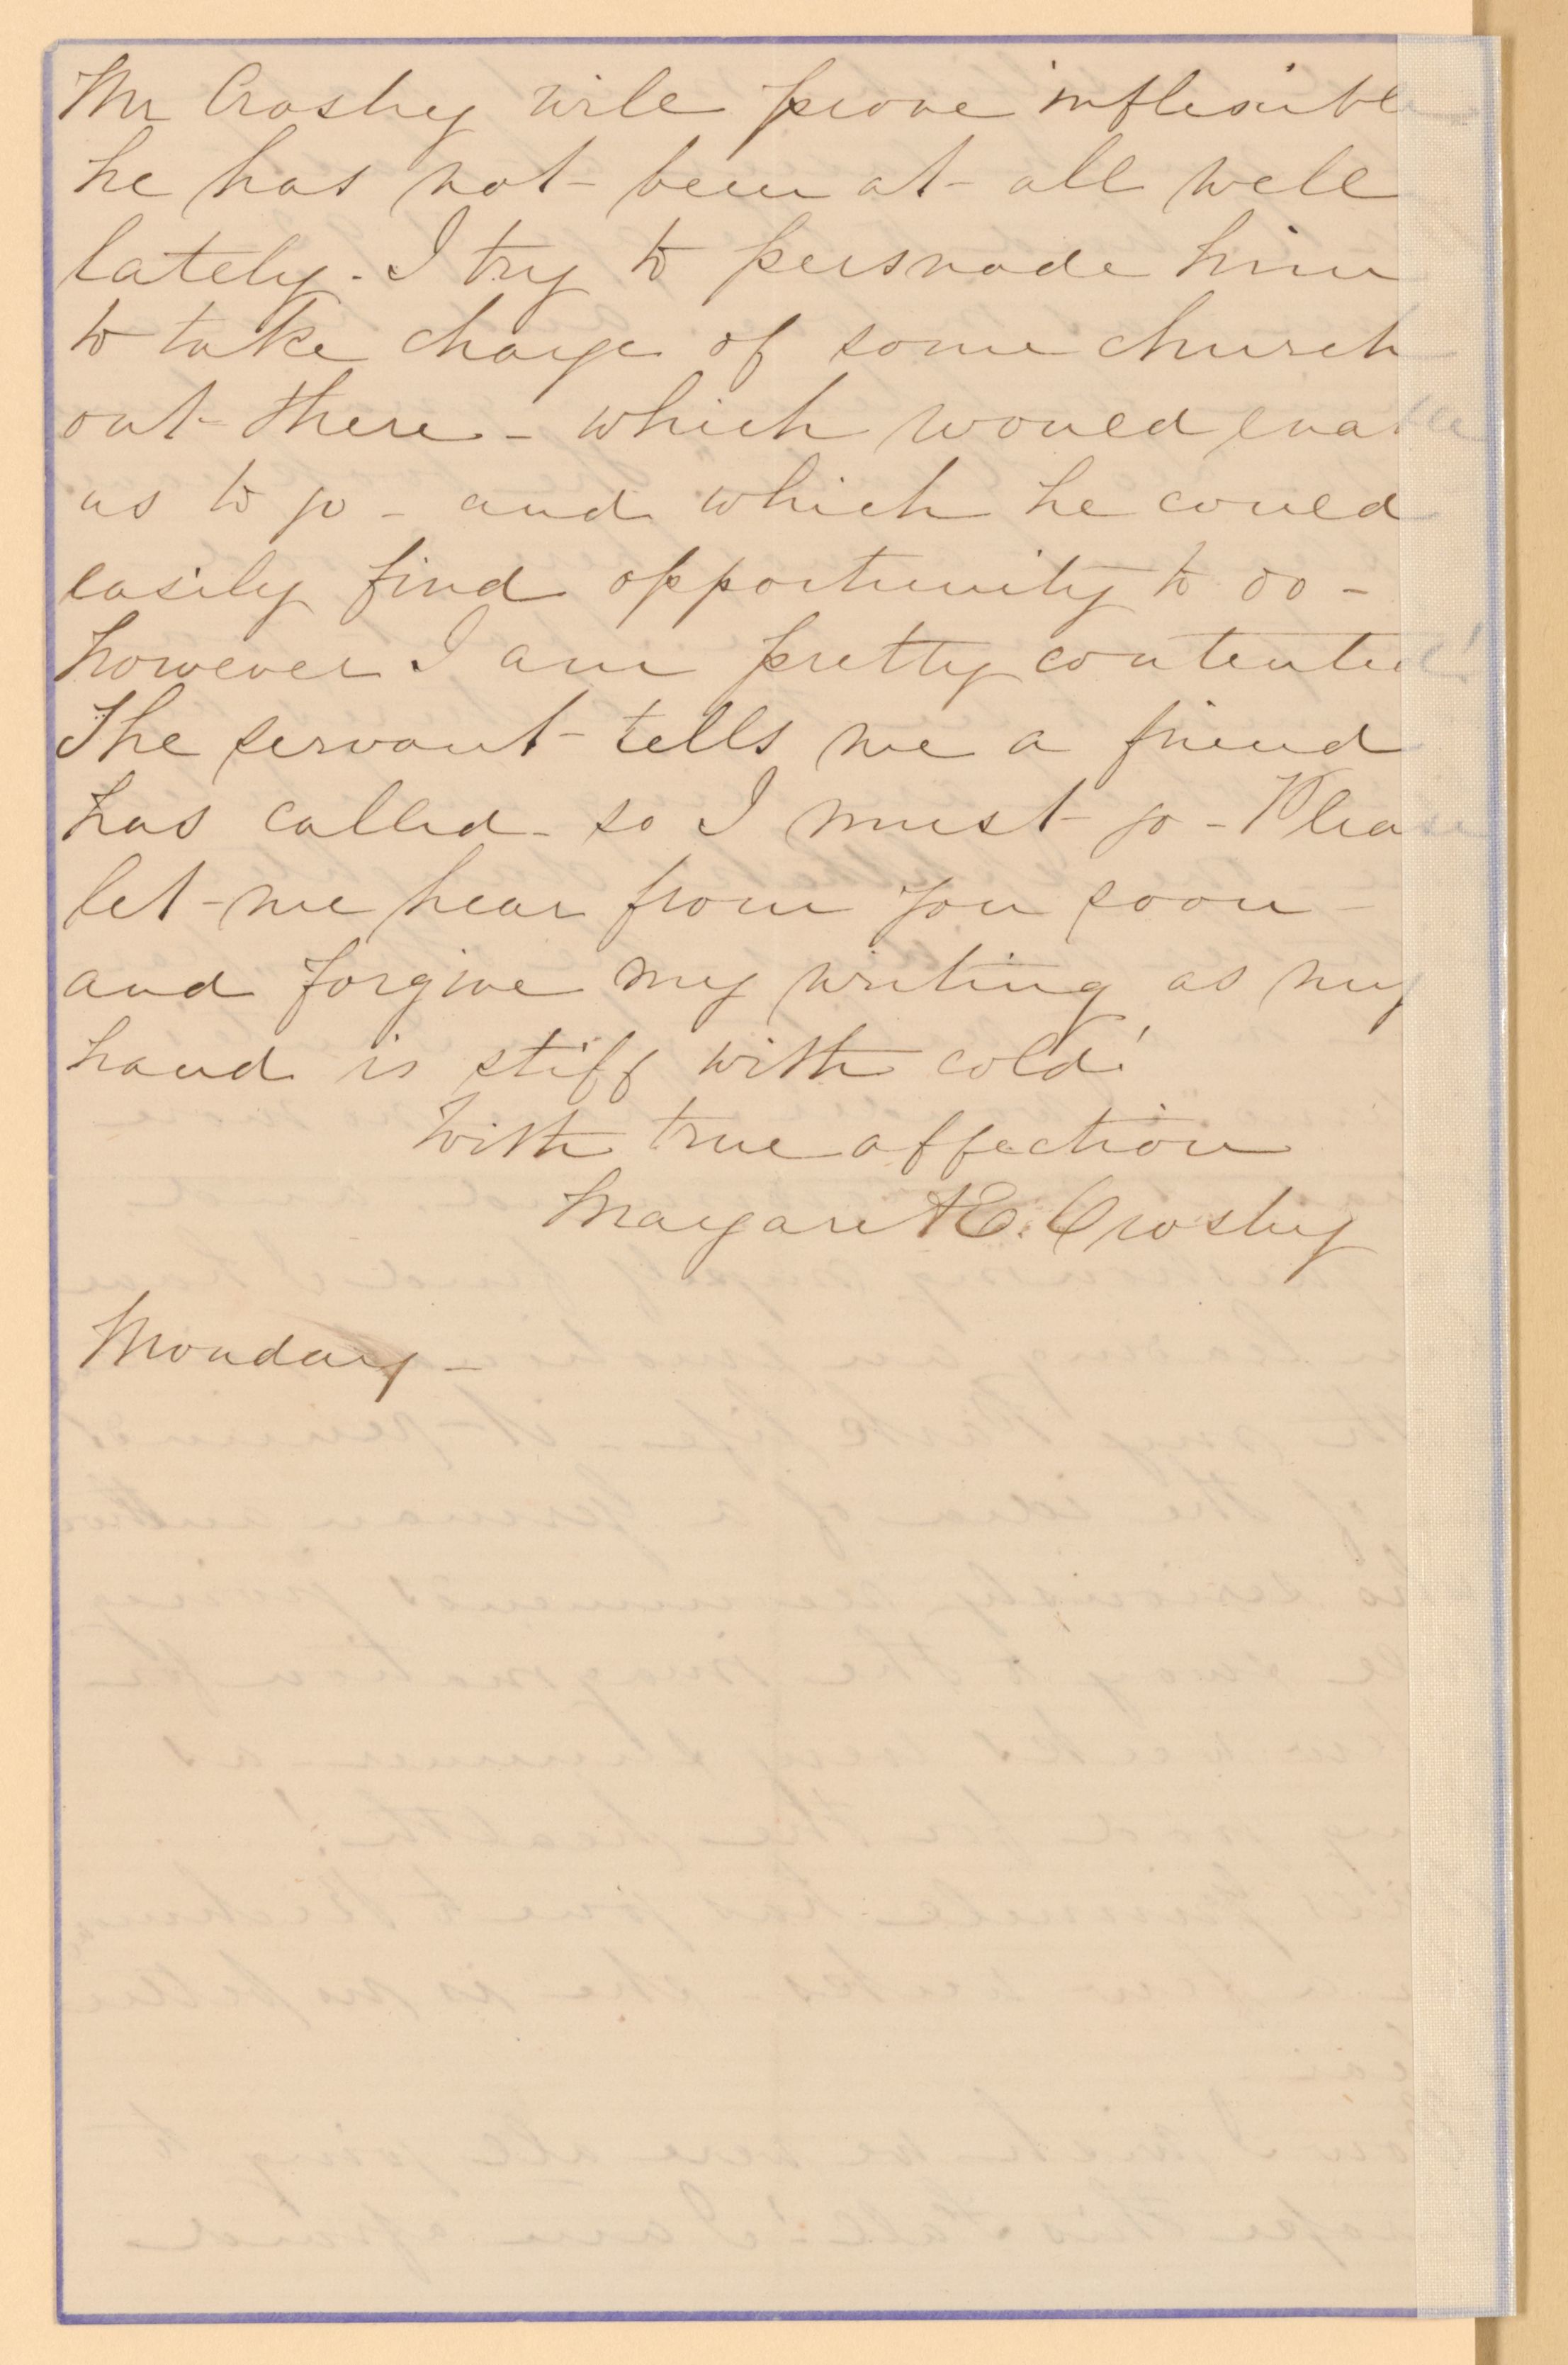 Mr Crosby will prove inflexible
he has not - been at - all well
lately - I try to persuade him
to take charge of some church
out there - which would enable
us to go - and which he could
easily find opportunity to do -
however I am pretty contented!
The servant - tells me a friend
has called - so I must go - Please
let - me hear from you soon -
and forgive my writing as my
hand is stiff with cold!
With true affection
Margaret E. Crosby
Monday -